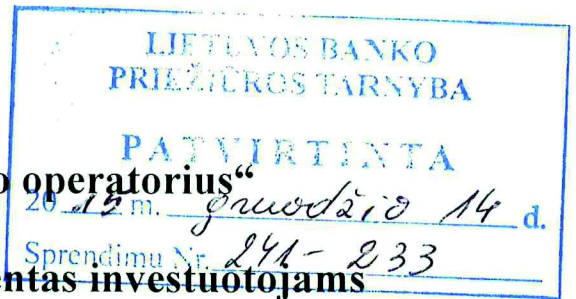 LIETUVOS BANKO
PRIEŽIŪROS TARNYBA
PATVIRTINTA
o operatorius“
2015 m. gruodžio 14 d.
Sprendimu Nr. 241-233
entas investuotojams